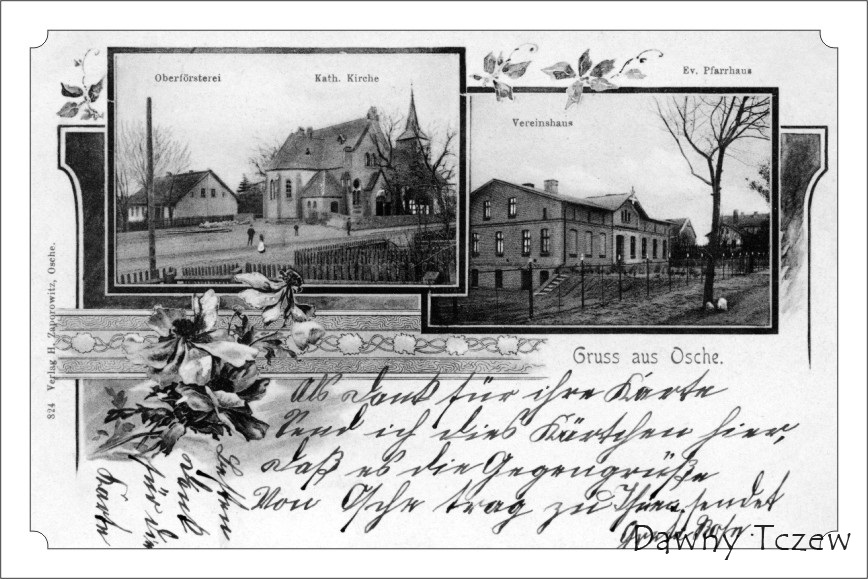 Oberförsterei
Kath. Kirche
Ev. Pfarrhaus
Vereinshaus
824 Verlag H. Zaporowitz, Osche.
Gruss aus Osche.
Als Dank für ihre Karte
Send ich dies Kärtchen hier,
Daß es die Gegengrüße
Von Osche trag zu Ihnen. sendet
Besten
Dank
für die
Karte
Dawny Tczew